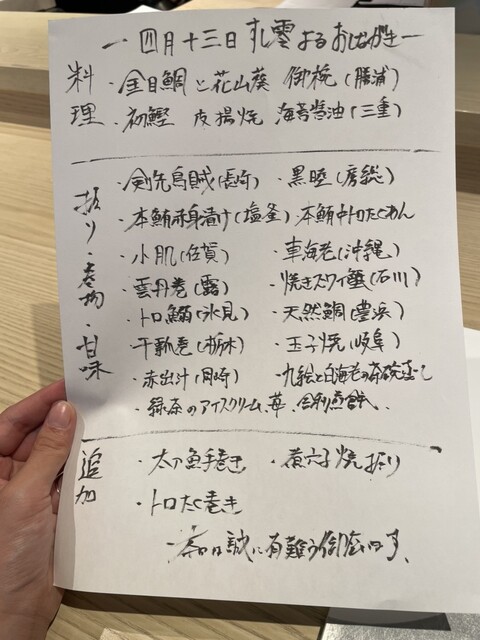 一 四月十三日 すし雲 よる おしながき 一
料理
・金目鯛と花山葵 御椀(勝浦)
・初鰹 皮揚焼 海苔醤油(三重)
握り・巻物・甘味
・剣先烏賊(長崎) ・黒睦(房総)
・本鮪赤身漬け(塩釜) ・本鮪中トロたくわん
・小肌(佐賀) ・車海老(沖縄)
・雲丹巻(露) ・焼きズワイ蟹(石川)
・トロ鰯(氷見) ・天然鯛(豊浜)
・干瓢巻(栃木) ・玉子焼(岐阜)
・赤出汁(岡崎) ・九絵と白海老の茶碗蒸し
・緑茶のアイスクリーム、苺、
追加
・太刀魚手巻き ・煮穴子焼握り
・トロたく巻き
本日は誠に有難う御座います、